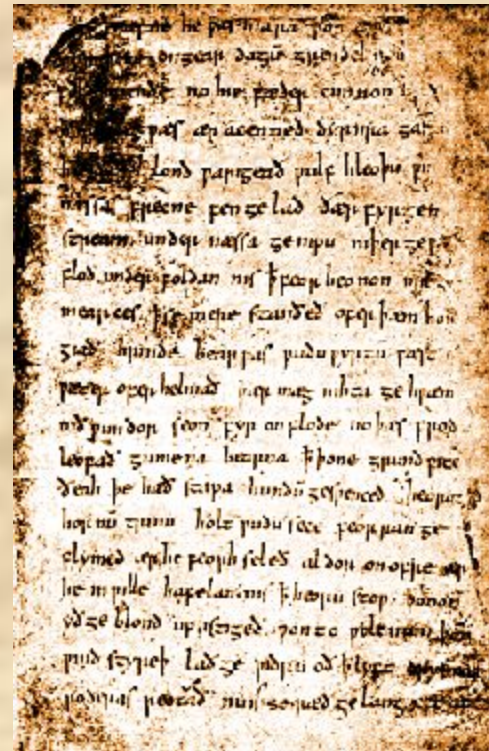 he ƿæs mara þon
on gear dagū grendel
no hie fæder cunnon
ƿæs ær acenned dyrnra gas
lond ƿarigeað ƿulf hleoþu ƿin
næssas frecne fen ge lad ðær fyrgen
stream under næssa genipu niþer geƿ
flod under foldan nis ꝥ feor heonon mil
mearces ꝥ se mere standeð ofer þæm hon
giað hrinde bearƿas ƿudu ƿyrtū fæst
ƿæter ofer helmað þær mæg nihta ge hƿæm
nið ƿundor seon fyr on flode no þæs frod
leofað gumena bearna ꝥ þone grund ƿite
ðeah þe hæð stapa hundū gesƿenced heorot
hornū trum holt ƿudu sece feorran ge
flymed ær he feorh seleð aldor on ofre ær
he in ƿille hafelan nis ꝥ heoru stoƿ þonon
yð ge blond up astigeð ƿon to ƿolcnum þoñ
ƿind styreþ lað ge ƿidru oð ꝥ lyft
roderas reotað nu is se ræd ge lang